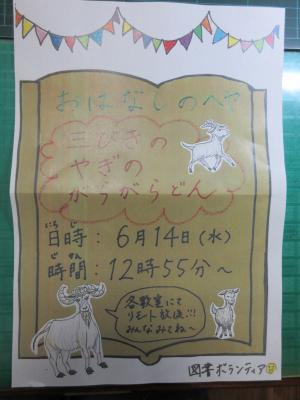 おはなしのへや
三びきの
やぎの
がらがらどん
にちじ
日時：6月14日(水)
じかん
時間：12時55分～
各教室にて
リモート放送!!!
みんなみてね～
図書ボランティア